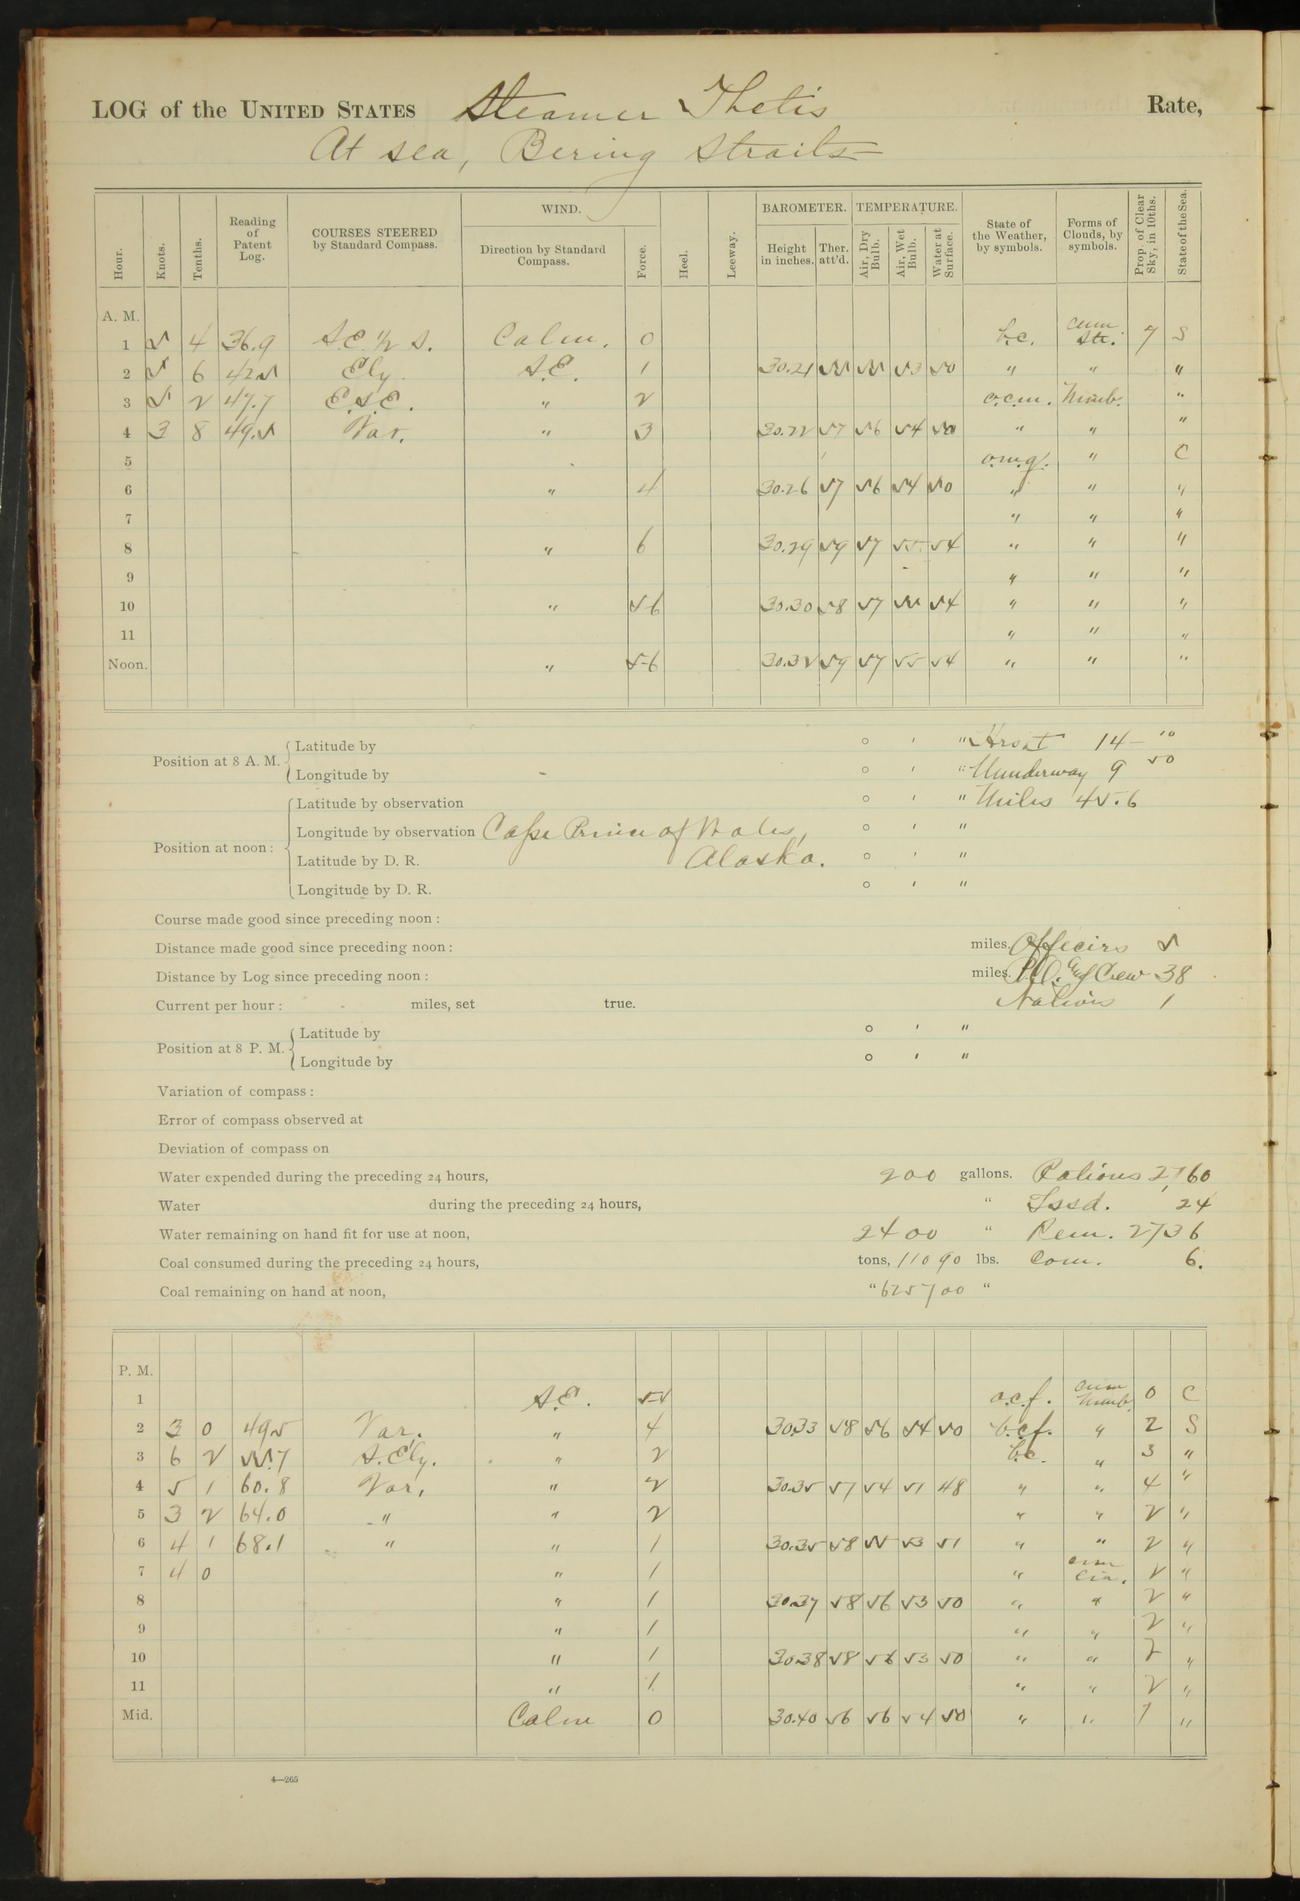 LOG of the UNITED STATES Steamer Thetis Rate,
At sea, Bering Straits
Hour. Knots. Tenths. Reading of Patent Log. COURSES STEERED by Standard Compass. WIND. Direction by Standard Compass. Force. Heel. Leeway. BAROMETER. Height in inches. Ther. att'd. TEMPERATURE. Air, Dry Bulb. Air, Wet Bulb. Water at Surface. State of the Weather, by symbols. Forms of Clouds, by symbols. Prop. of Clear Sky, in 10ths. State of the Sea.
A. M.
1 5 4 36.9 S.E. 1/2 S. Calm. 0 b.c. cum. Str. 7 S
2 5 6 42.5 Ely. S.E. 1 30.21 55 55 53 50 " " "
3 5 2 47.7 E.S.E. " 2 o.c.m. Nimb. "
4 3 8 49.5 Var. " 3 30.22 57 56 54 50 " " "
5 o.m.q. " C
6 " 4 30.26 57 56 54 50 " " "
7 " " "
8 " 6 30.29 59 57 55 54 " " "
9 " " "
10 " 5-6 30.30 58 57 55 54 " " "
11 " " "
Noon. " 5-6 30.32 59 57 55 54 " " "
Position at 8 A. M. Latitude by ° ' " Hrs at 14 - 10
Longitude by ° ' " Underway 9 50
Position at noon: Latitude by observation ° ' " Miles 45.6
Longitude by observation Cape Prince of Wales, ° ' "
Latitude by D. R. Alaska. ° ' "
Longitude by D. R. ° ' "
Course made good since preceding noon:
Distance made good since preceding noon: miles. Officers 5
Distance by Log since preceding noon: miles. P.O. & Crew 38
Current per hour: miles, set true. Natives 1
Position at 8 P. M. Latitude by ° ' "
Longitude by ° ' "
Variation of compass:
Error of compass observed at
Deviation of compass on
Water expended during the preceding 24 hours, 200 gallons. Rations 2760
Water during the preceding 24 hours, " Issd. 24
Water remaining on hand fit for use at noon, 2400 " Rem. 2736
Coal consumed during the preceding 24 hours, tons, 11090 lbs. Com. 6.
Coal remaining on hand at noon, " 625700 "
P. M.
1 S.E. 5 o.c.f. cum Nimb. 0 C
2 3 0 495 Var. " 4 30.33 58 56 54 50 b.c.f. " 2 S
3 6 2 55.7 S.Ely. " 2 b.c. " 3 "
4 5 1 60.8 Var. " 2 30.35 57 54 51 48 " " 4 "
5 3 2 64.0 " " 2 " " 2 "
6 4 1 68.1 " " 1 30.35 58 55 53 51 " " 2 "
7 4 0 " 1 " cum Cir. 2 "
8 " 1 30.37 58 56 53 50 " " 2 "
9 " 1 " " 2 "
10 " 1 30.38 58 56 53 50 " " 2 "
11 " 1 " " 2 "
Mid. Calm 0 30.40 56 56 54 50 " " 1 "
4—265